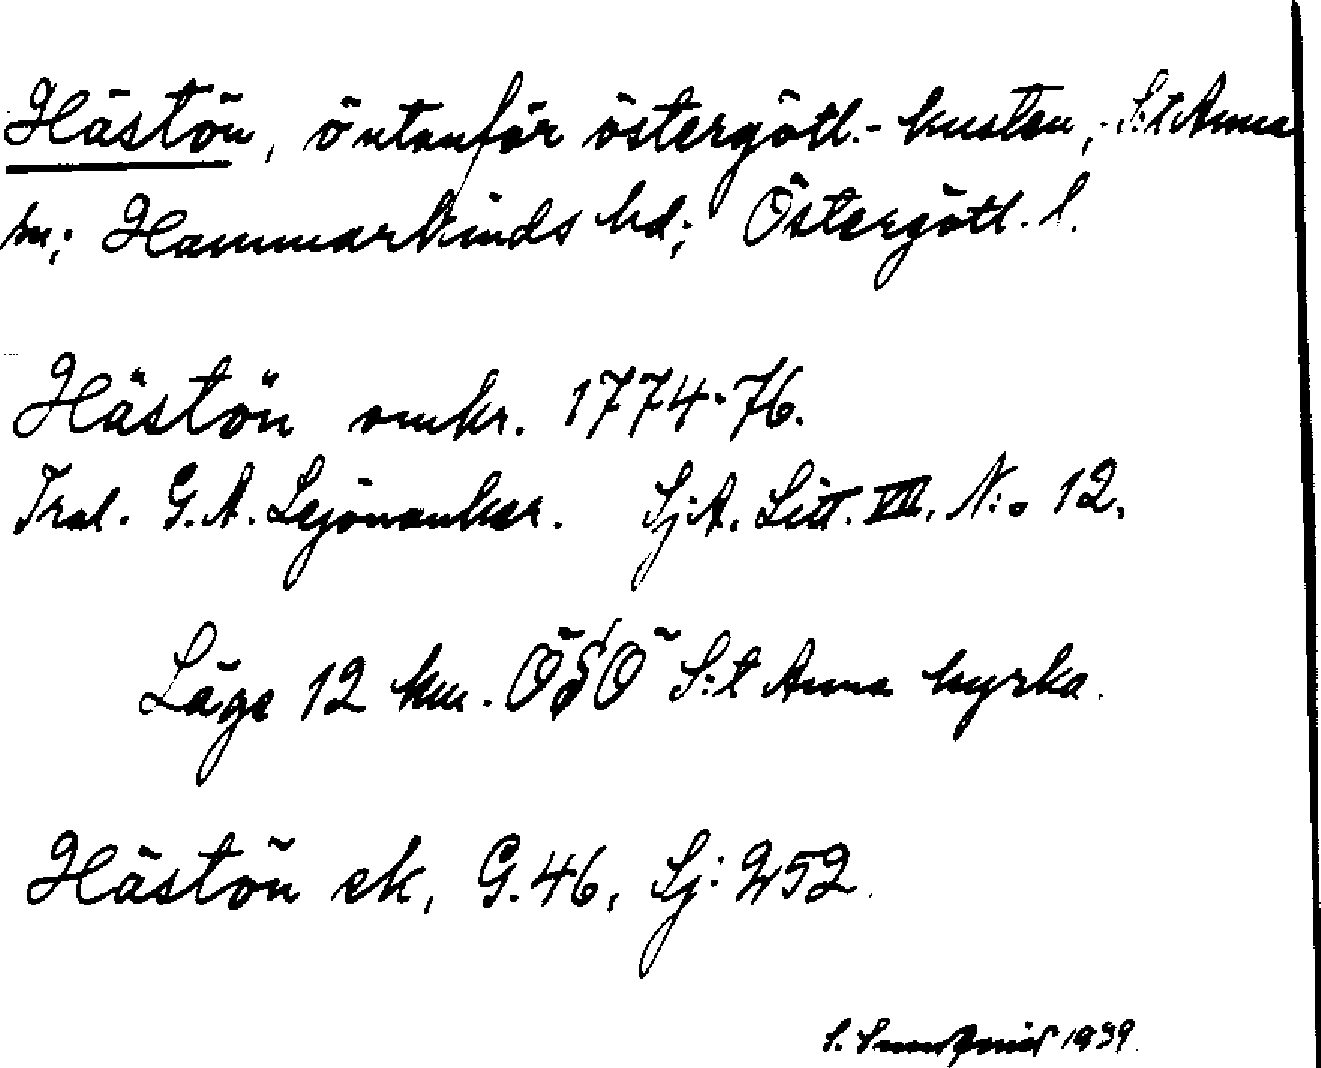 Hästön, ö utanför östergötl.-kusten, S:t Anna
sn; Hammarkinds hd; Östergötl. l.
Hästön omkr. 1774-76.
Trol. G. A. Lejonanker. Sj.A. Litt. VII. N:o 12.
Läge 12 km. ÖSÖ S:t Anna kyrka.
Hästön ek, G. 46, Sj: 252.
S. 1939